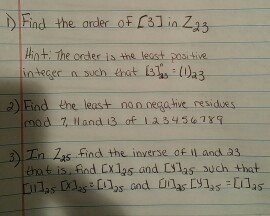 1) Find the order of [3] in Z₂₃
Hint: The order is the least positive
integer n such that [3]ⁿ₂₃ = (1)₂₃
2) Find the least nonnegative residues
mod 7, 11 and 13 of 123456789
3) In Z₂₅ find the inverse of 11 and 23
that is, find [X]₂₅ and [Y]₂₅ such that
[11]₂₅ [X]₂₅ = [1]₂₅ and [23]₂₅ [Y]₂₅ = [1]₂₅